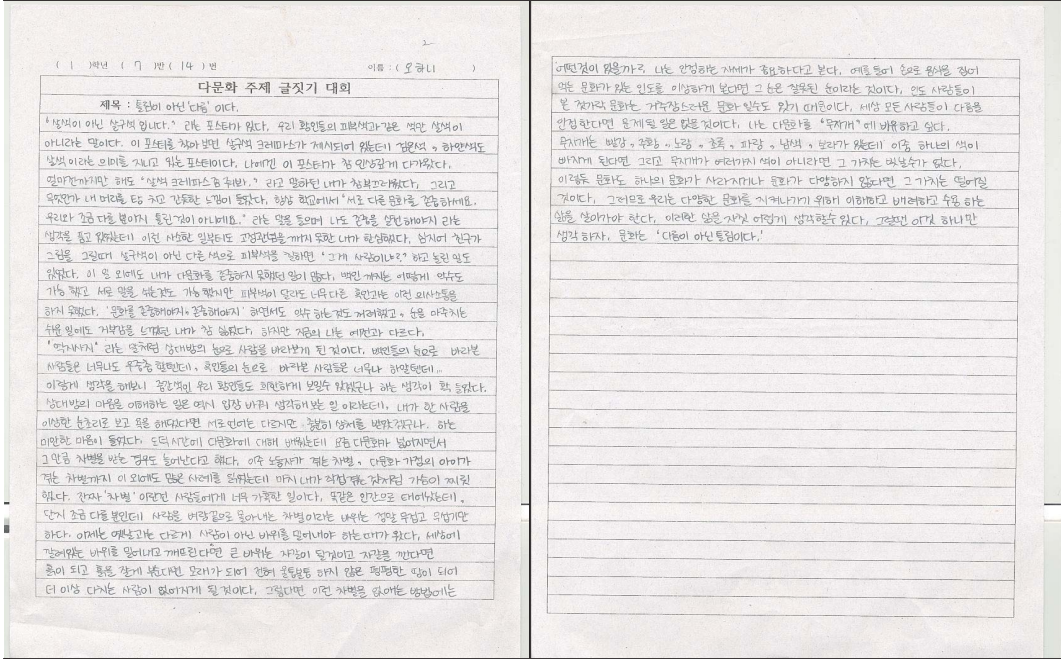 2
( 1 )학년 ( 7 )반 ( 14 ) 번 이름 : ( 오하니 )
다문화 주제 글짓기 대회
제목 : 틀림이 아닌 '다름' 이다.
"살색이 아닌 살구색 입니다." 라는 포스터가 있다. 우리 황인들의 피부색과 같은 색만 살색이
아니라는 말이다. 이 포스터를 찾아 보면 살구색 크레파스가 제시되어 있는데 검은색, 하얀색도
살색 이라는 의미를 지니고 있는 포스터이다. 나에겐 이 포스터가 참 인상깊게 다가왔다.
얼마전까지만 해도 "살색 크레파스좀 줘봐." 라고 말하던 내가 참 부끄러웠다. 그리고
무엇인가 내 머리를 탁 치고 간듯한 느낌이 들었다. 항상 학교에서 "서로 다른 문화를 존중하세요.
우리와 조금 다를 뿐이지 틀린 것이 아니에요." 라는 말을 들으며 나도 존중을 실천해야지 라는
생각을 품고 있었는데 이런 사소한 일부터도 고정관념을 깨지 못한 내가 한심했다. 심지어 친구가
그림을 그릴때 살구색이 아닌 다른 색으로 피부색을 칠하면 "그게 사람이냐?" 하고 놀린 일도
있었다. 이 일 외에도 내가 다문화를 존중하지 못했던 일이 많다. 백인 까지는 어떻게 악수도
가능 했고 서로 말을 섞는것도 가능 했지만 피부색이 달라도 너무 다른 흑인과는 이런 의사소통을
하지 못했다. '문화를 존중해야지, 존중해야지' 하면서도 악수 하는것도 꺼려했고, 눈을 마주치는
쉬운 일에도 거부감을 느꼈던 내가 참 싫었다. 하지만 지금의 나는 예전과 다르다.
"역지사지" 라는 말처럼 상대방의 눈으로 사람을 바라보게 된 것이다. 백인들의 눈으로 바라본
사람들은 너무나도 우중충 할텐데, 흑인들의 눈으로 바라본 사람들은 너무나 하얄텐데...
이렇게 생각을 해보니 중간색인 우리 황인들도 희한하게 보일수 있겠구나 하는 생각이 확 들었다.
상대방의 마음을 이해하는 일은 역시 입장 바꿔 생각해 보는 일 이라는데, 내가 한 사람을
이상한 눈초리로 보고 욕을 해댔다면 서로 언어는 다르지만 충분히 상처를 받았겠구나. 하는
미안한 마음이 들었다. 도덕시간에 다문화에 대해 배웠는데 요즘 다문화가 넓어지면서
그 만큼 차별을 받는 경우도 늘어난다고 했다. 이주 노동자가 겪는 차별, 다문화 가정의 아이가
겪는 차별까지 이 외에도 많은 사례를 읽었는데 마치 내가 직접 겪는 것처럼 가슴이 찌릿
했다. 진짜 '차별' 이란건 사람들에게 너무 가혹한 일이다. 똑같은 인간으로 태어났는데,
단지 조금 다를 뿐인데 사람을 벼랑끝으로 몰아내는 차별이라는 바위는 정말 무겁고 무섭기만
하다. 이제는 옛날과는 다르게 사람이 아닌 바위를 밀어내야 하는 때가 왔다. 세상에
깔려있는 바위를 밀어내고 깨뜨린다면 큰 바위는 자갈이 될것이고 자갈을 깐다면
흙이 되고 흙을 잘게 부순다면 모래가 되어 전혀 울퉁불퉁 하지 않은 평평한 땅이 되어
더 이상 다치는 사람이 없어지게 될 것이다. 그렇다면 이런 차별을 없애는 방법에는
어떤것이 있을까? 나는 인정하는 자세가 중요하다고 본다. 예를 들어 손으로 음식을 집어
먹는 문화가 있는 인도를 이상하게 본다면 그 눈은 잘못된 눈이라는 것이다. 인도 사람들이
본 젓가락 문화는 거추장스러운 문화 일수도 있기 때문이다. 세상 모든 사람들이 다름을
인정 한다면 문제 될 일은 없을 것이다. 나는 다문화를 "무지개" 에 비유하고 싶다.
무지개는 빨강, 주황, 노랑, 초록, 파랑, 남색, 보라가 있는데 이중 하나의 색이
빠지게 된다면 그리고 무지개가 여러가지 색이 아니라면 그 가치는 빛날수가 없다.
이렇듯 문화도 하나의 문화가 사라지거나 문화가 다양하지 않다면 그 가치는 떨어질
것이다. 그러므로 우리는 다양한 문화를 지켜나가기 위해 이해하고 배려하고 수용 하는
삶을 살아가야 한다. 이러한 삶을 자칫 어렵게 생각할수 있다. 그렇다면 이것 하나만
생각 하자. 문화는 '다름이 아닌 틀림이다.'